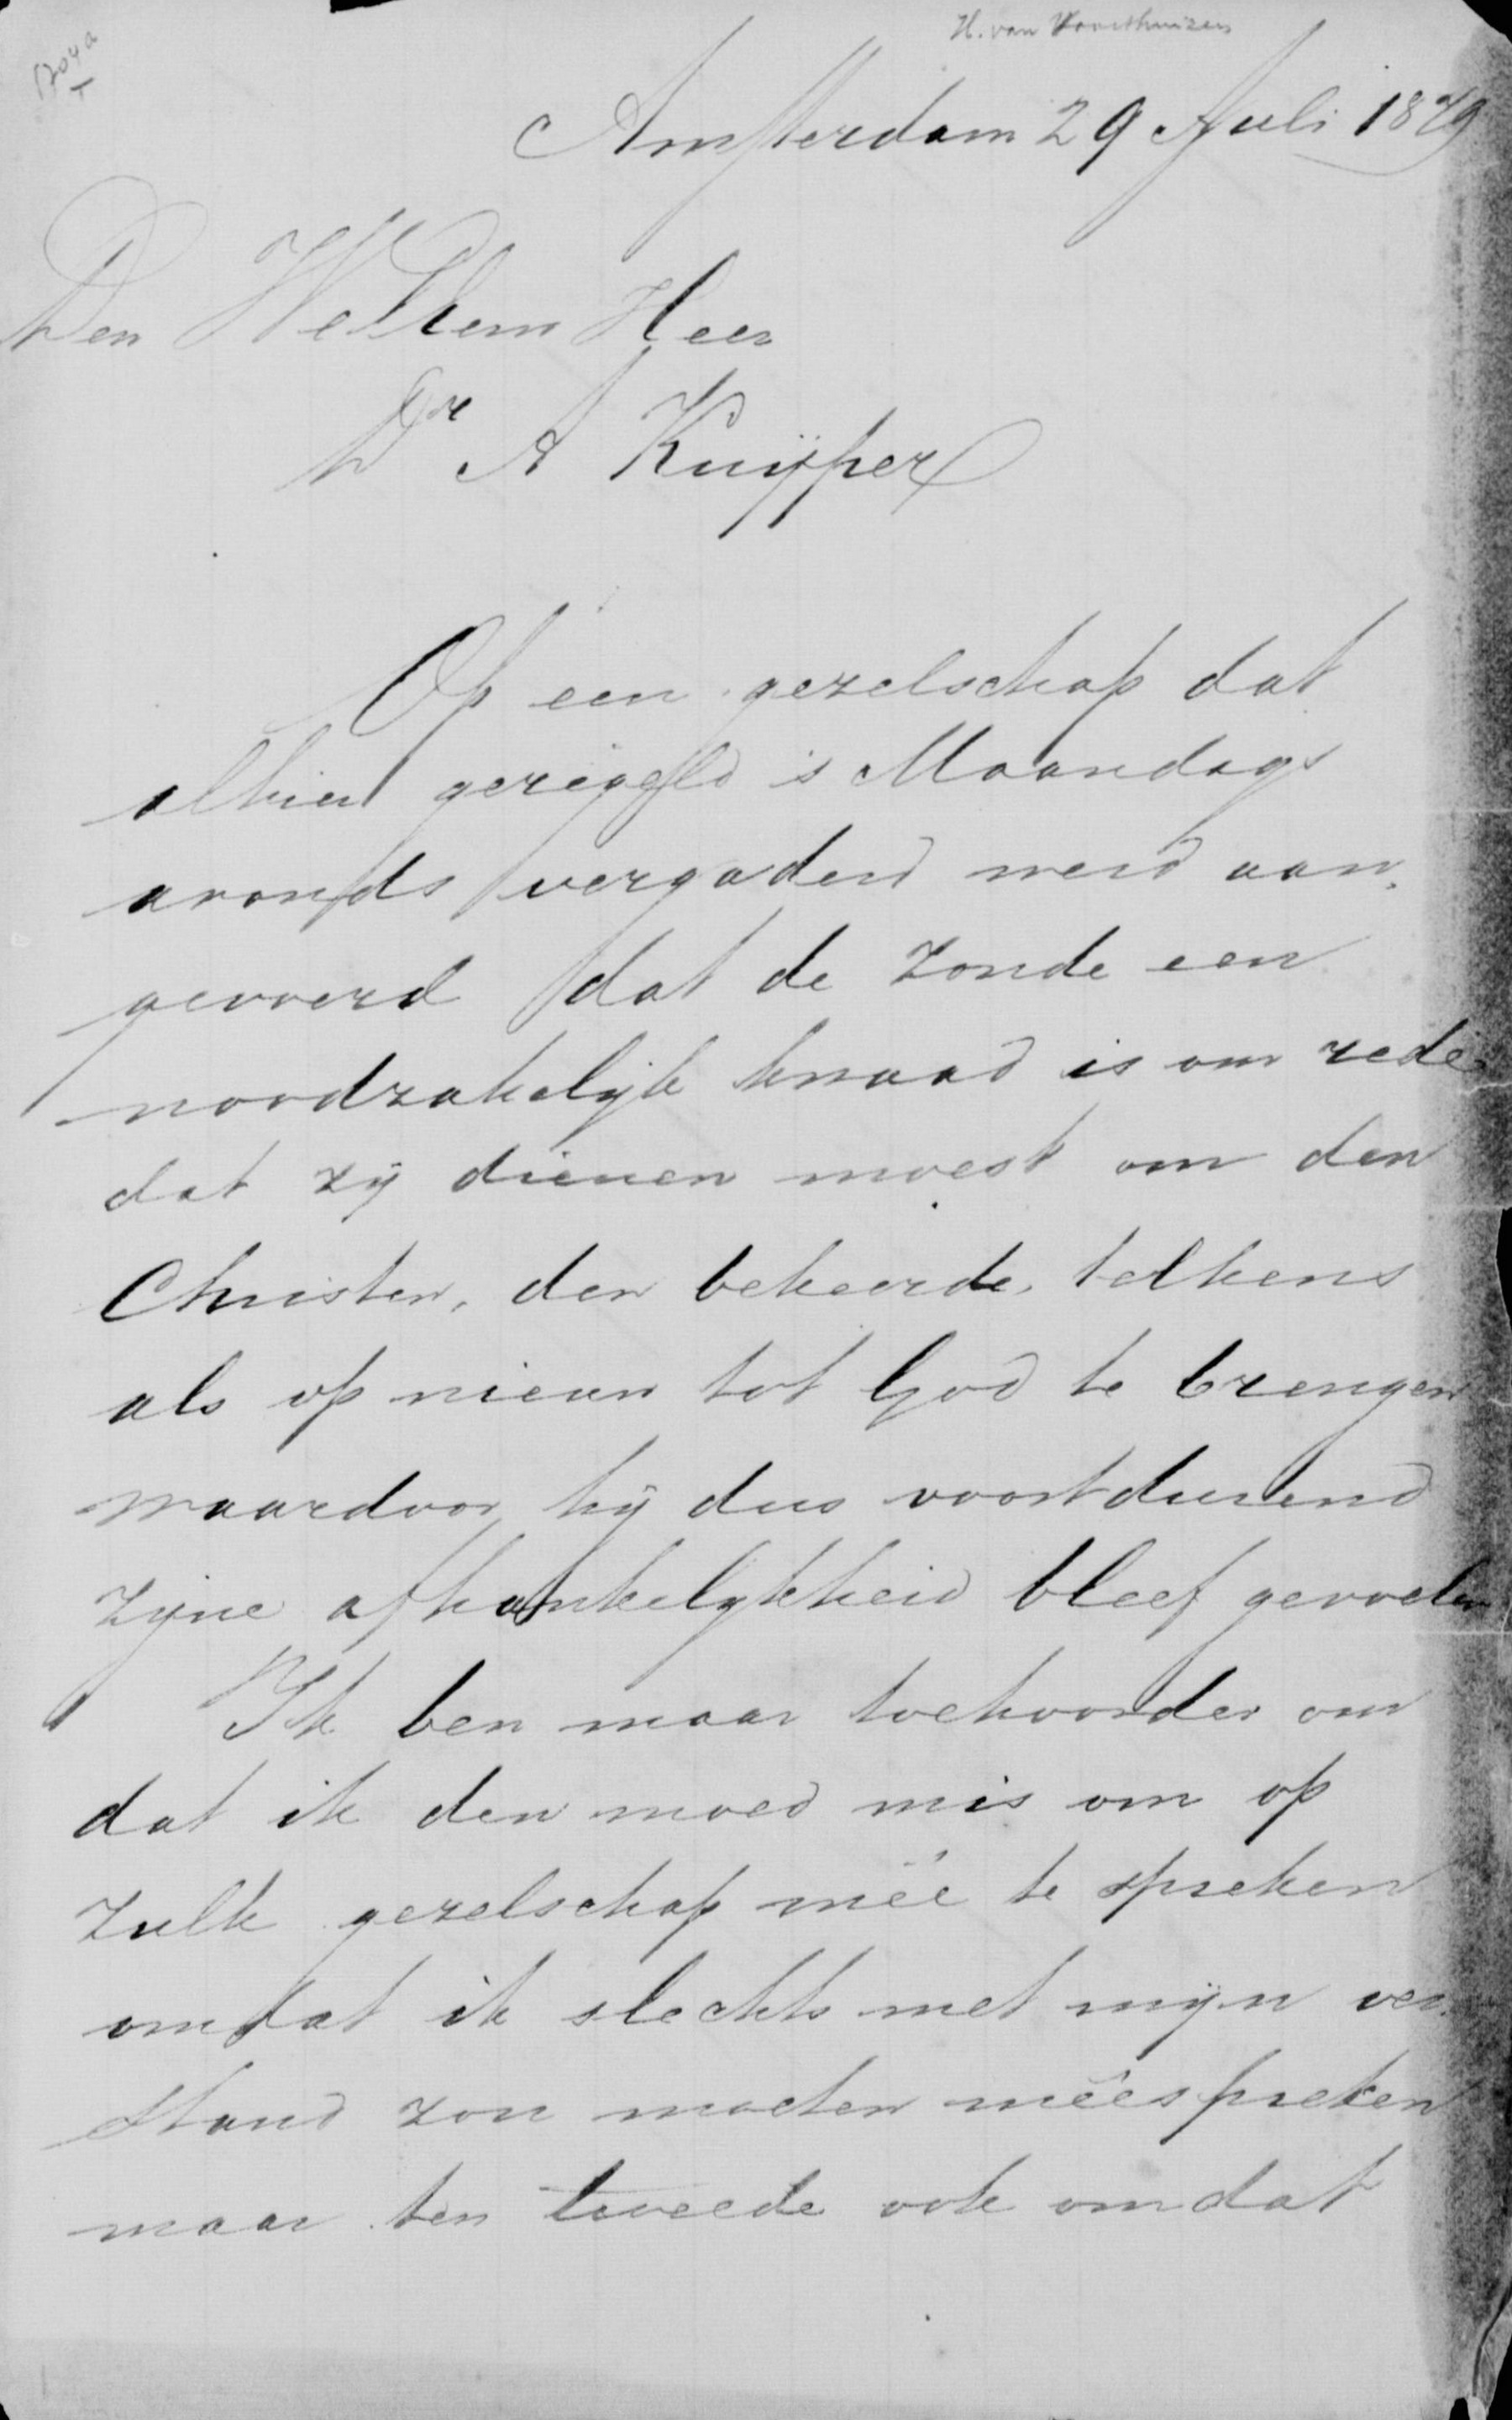 H. van Voorthuizen
1704a
Amsterdam 29 Juli 1879
Den WelEerw Heer
Dr A Kuijper
Op een gezelschap dat
alhier geregeld is Maandags
avonds vergaderd werd aan,
gevoerd dat de zonde een
noodzakelijk kwaad is om rede
dat zij dienen moest om den
Christen, den bekeerde, telkens
als op nieuw tot God te brengen
waardoor hij dus voortdurend
zijne afhankelijkheid bleef gevoelen
Ik ben maar toehoorder om
dat ik den moed mis om op
zulk gezelschap meê te spreken
omdat ik slechts met mijn ver,
stand zou moeten meêspreken
maar ten tweede ook omdat